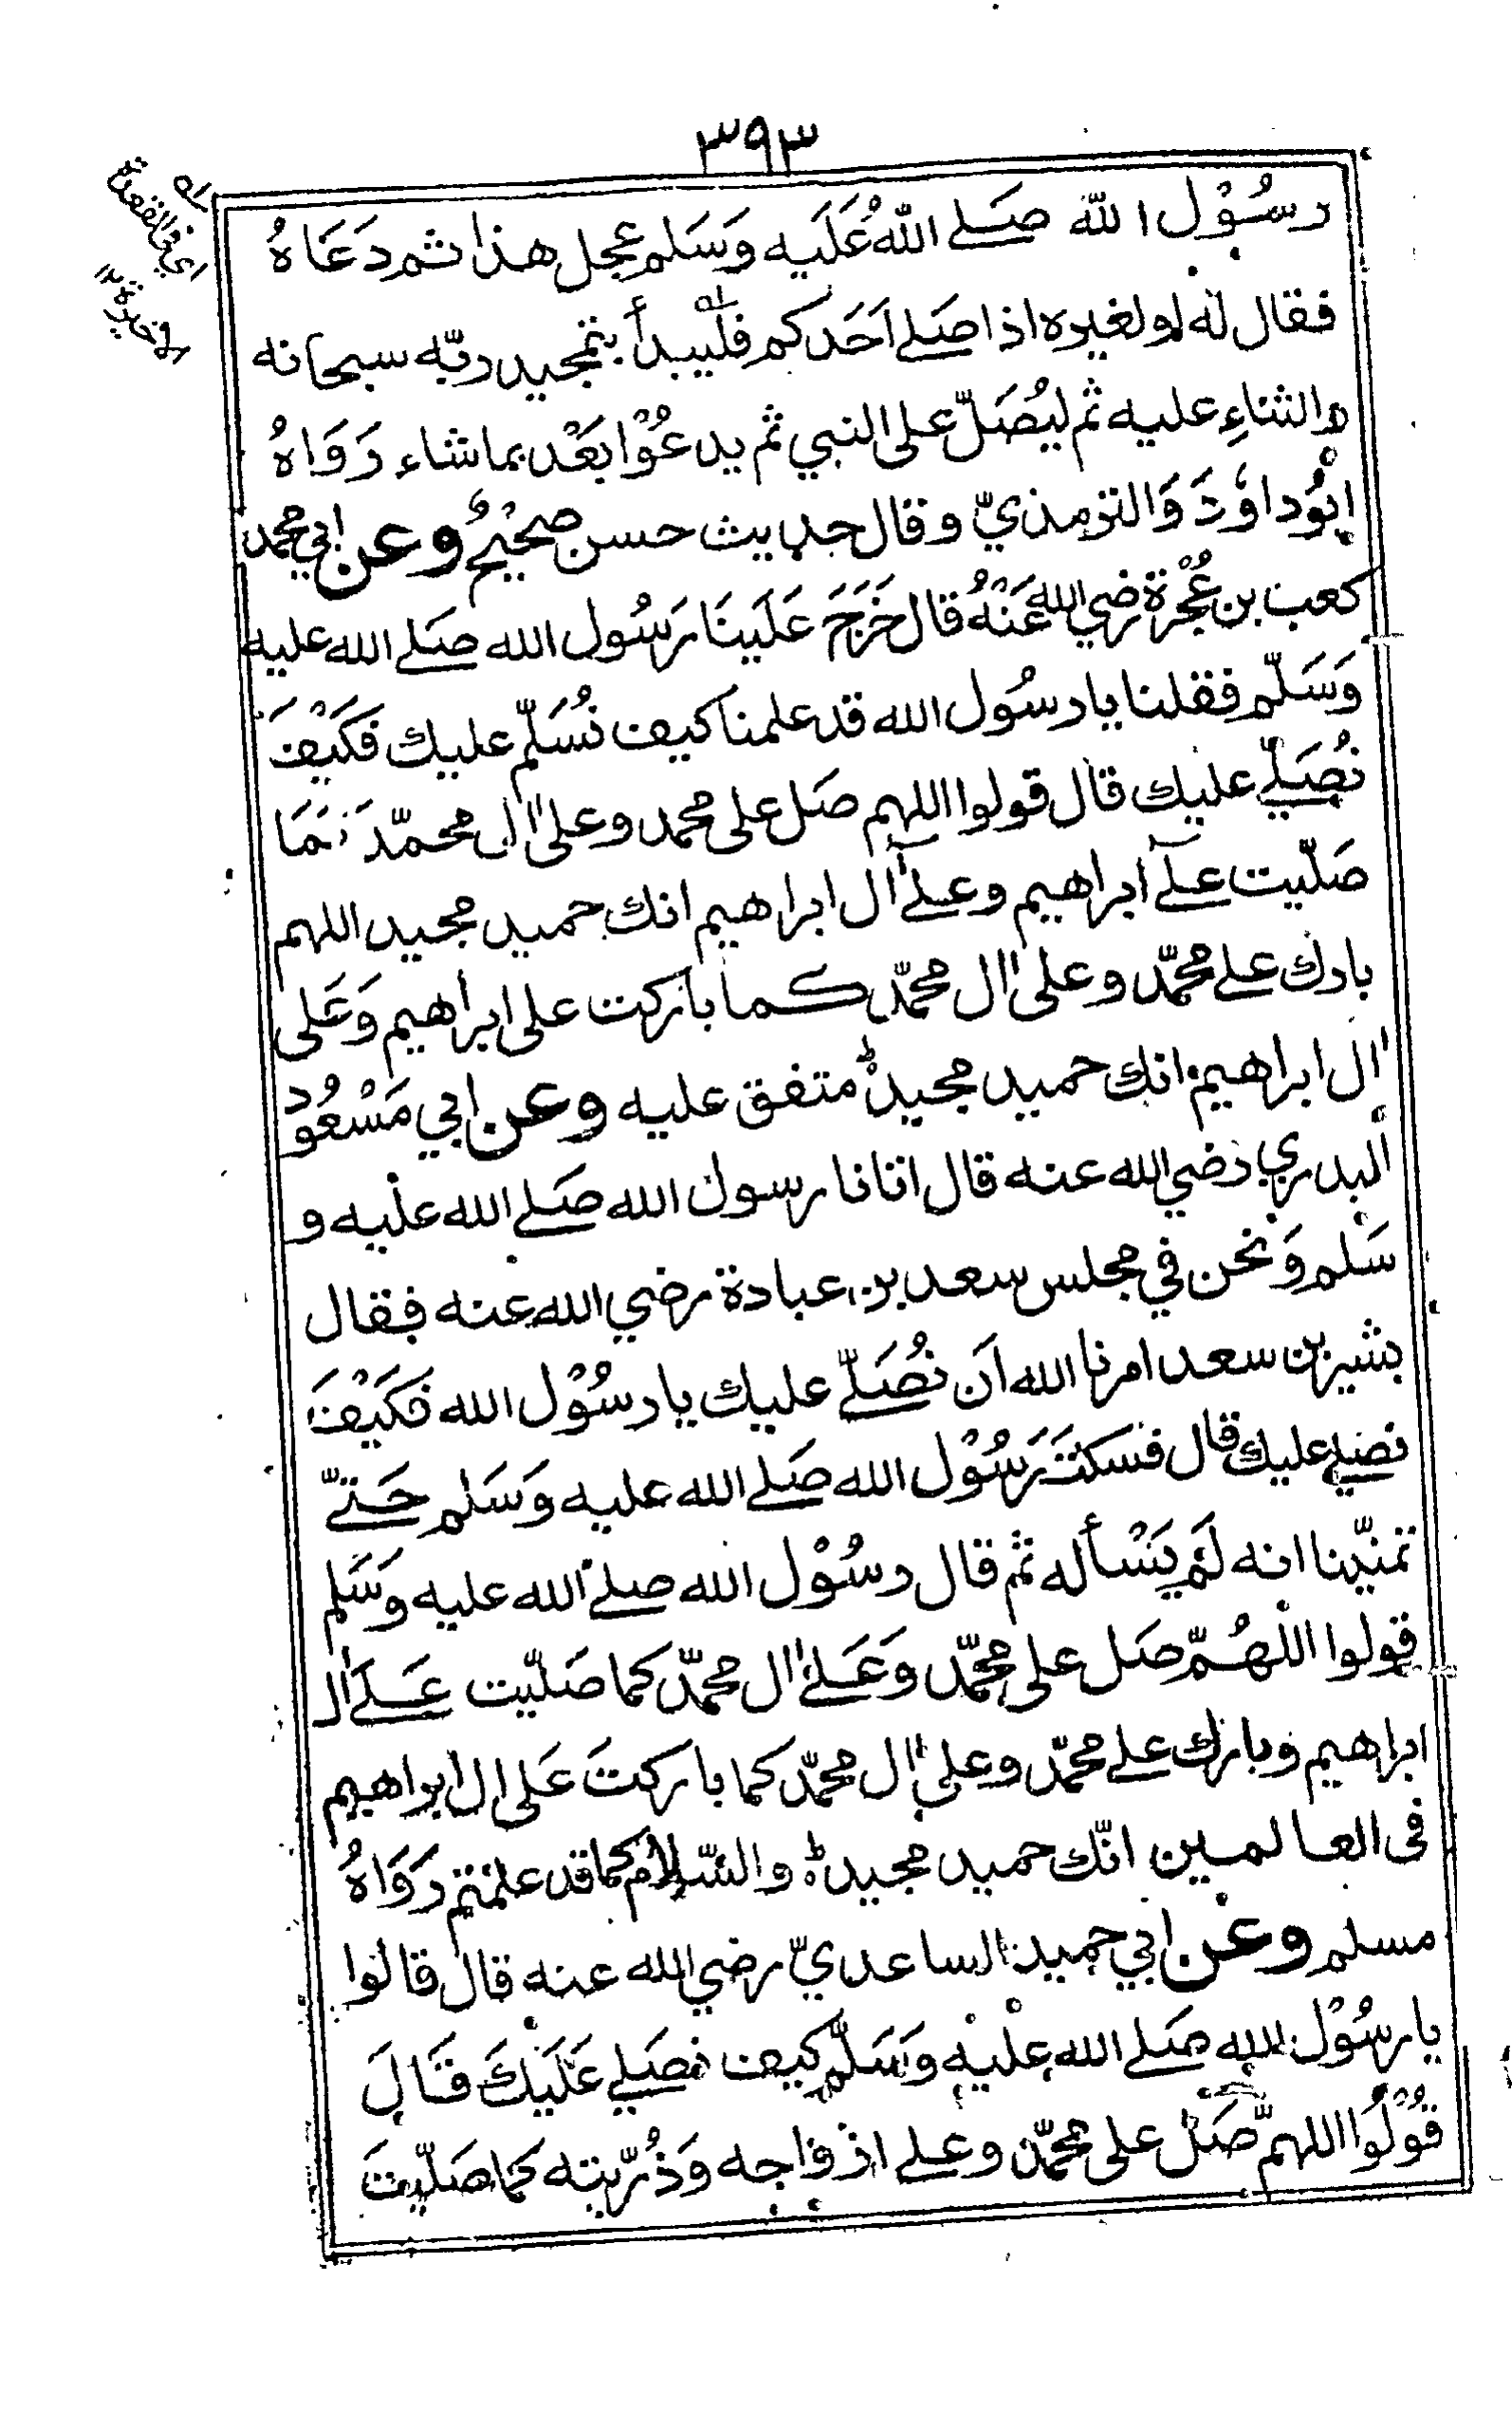 ٣٩٣
رسُوْل الله صَلے اللهُ عَلَيه وَسَلم عجل هذا ثم دَعَاهُ
فقال له او لغيره اذا صَلے اَحَدكم فليبدأ بتمجيد ربّه سبحانه
والثناءِ عليه ثم ليُصَلّ على النبي ثم يدعُوْا بَعْد بما شاء رَوَاهُ
اَبُوْ داوٗدَ وَالترمذيّ وقال حديث حسن صَحِيْحٌ وعن ابي محمد
كعب بن عُجْرة رضي الله عَنْهُ قال خَرَجَ عَلَينَا رَسُول الله صَلے الله عليه
وَسَلّم فقلنا يا رسُول الله قد علمنا كيف نُسَلّم عليك فَكَيْفَ
نُصَلّے عليك قال قولوا اللهم صَل على محمد وعلىٰ اٰل محمّد كَمَا
صَلّيت علےٓ ابراهيم وعلےٓ اٰل ابراهيم انك حميد مجيد اللهم
بارك علے محمّد وعلى اٰل محمّد كما باركت على ابراهيم وَعَلى
اٰل ابراهيم انك حميد مجيدؕ متفق عليه وعن ابي مَسْعُود
البدري رضي الله عنه قال اتانا رسول الله صَلے الله عليه و
سَلم وَنحن في مجلس سعد بن عبادة رضي الله عنه فقال
بشير بن سعد امرنا الله اَن نُصَلّے عليك يا رسُوْل الله فَكَيْفَ
نصلے عليك قال فسكتَ رَسُوْل الله صَلے الله عليه وَسَلم حَتّے
تمنّينا انه لَمْ يَسْأله ثم قال رسُوْل الله صلے الله عليه وَسَلم
قولوا اللهُمّ صَل على محمّد وَعَلےٰ اٰل محمّد كما صَلّيت عَلےٰ اٰل
ابراهيم وبارك علے محمّد وعلى اٰل محمّد كما باركتَ عَلى اٰل ابراهيم
فى العالمين انّك حميد مجيدؕ والسّلام كما قد علمتم رَوَاهُ
مسلم وعن ابي حميد الساعديّ رضي الله عنه قال قالوا
يا رسُوْل الله صَلے الله عليْه وَسَلّم كيف نصَلے عَلَيكَ قَالَ
قُوْلُوا اللهمّ صَلّ على محمّد وعلے ازواجه وَذُرّيته كما صَلّيتَ
اي في القعدة
الاخيرة ١٢